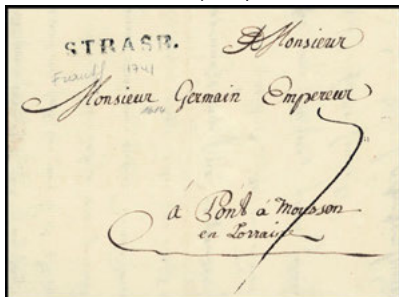 STRASB.
A Monsieur
1741
Monsieur Germain Empereur
à Pont à Mousson
en Lorraine